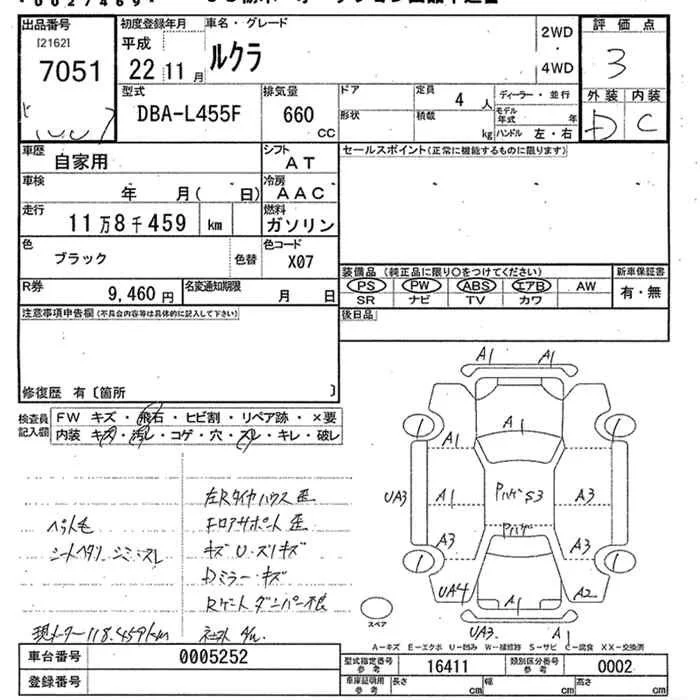 出品番号
[2162]
7051
初度登録年月
平成
22 11 月
車名・グレード
ルクラ
2WD
4WD
評価点
3
外装 内装
D C
型式
DBA-L455F
排気量
660
CC
ドア
定員
4 人
ディーラー・並行
形状
積載
kg
モデル年式
年
ハンドル 左・右
車歴
自家用
シフト
AT
セールスポイント(正常に機能するものに限ります)
車検
年 月( 日)
冷房
AAC
走行
11万8千459 km
燃料
ガソリン
色
ブラック
色替
色コード
X07
装備品(純正品に限り○をつけてください)
新車保証書
PS PW ABS エアB AW
有・無
SR ナビ TV カワ
R券
9,460円
名変通知期限
月 日
後日品
注意事項申告欄(不具合内容等は具体的に記入して下さい)
修復歴 有〔箇所 〕
検査員記入欄
FW キズ・飛石・ヒビ割・リペア跡・×要
内装・キズ・汚レ・コゲ・穴・スレ・キレ・破レ
左Rタイヤハウス歪
ペット毛
フロアサポート歪
シートヘタリ シミ・スレ
キズ U・スリキズ
Dミラーキズ
Rゲートダンパー不良
現メーター118,459km
A1 A1
A1
A1
UA3 A1 A3
A3 A3
UA4 A1 A2
UA3 A1
スペア
A-キズ E-エクボ U-凹み W-補修跡 S-サビ C-腐食 XX-交換済
車台番号
0005252
型式指定番号
参考
16411
類別区分番号
参考
0002
登録番号
車庫証明用
参考
長さ cm 幅 cm 高さ cm